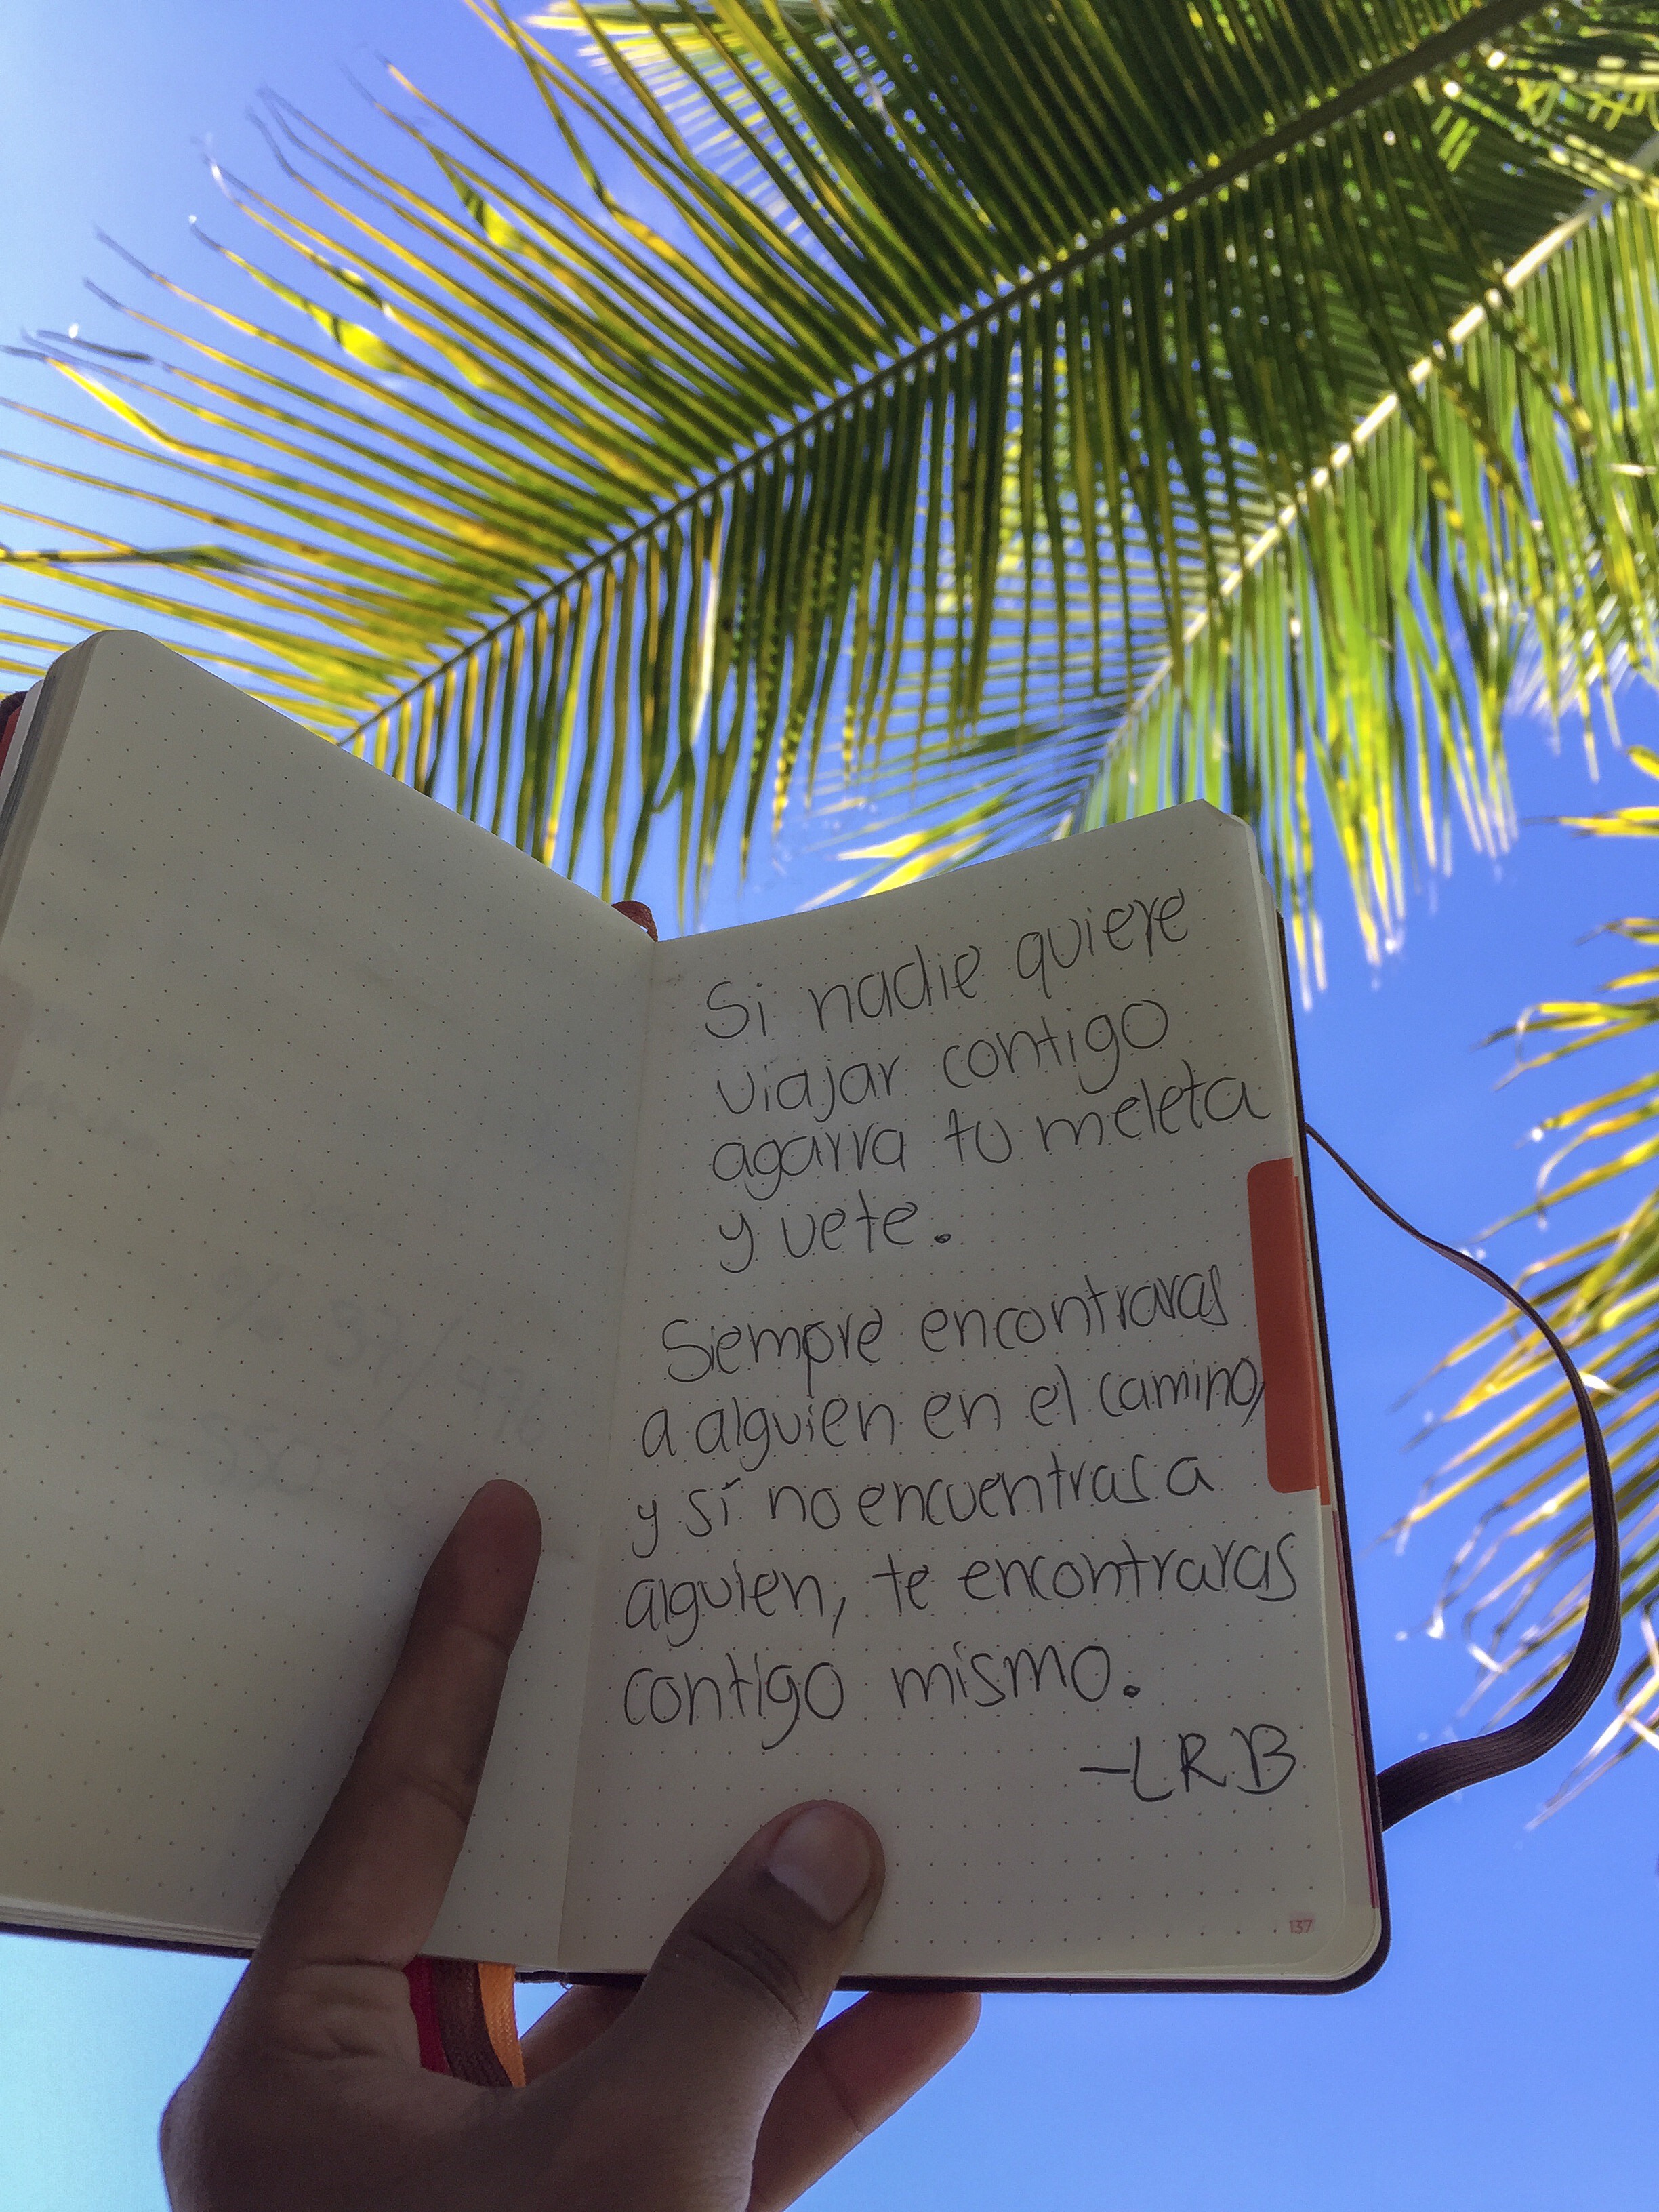 Si nadie quiere
viajar contigo
agarra tu meleta
y vete.
Siempre encontraras
a alguien en el camino,
y sí no encuentras a
alguien, te encontraras
contigo mismo.
-LRB
137